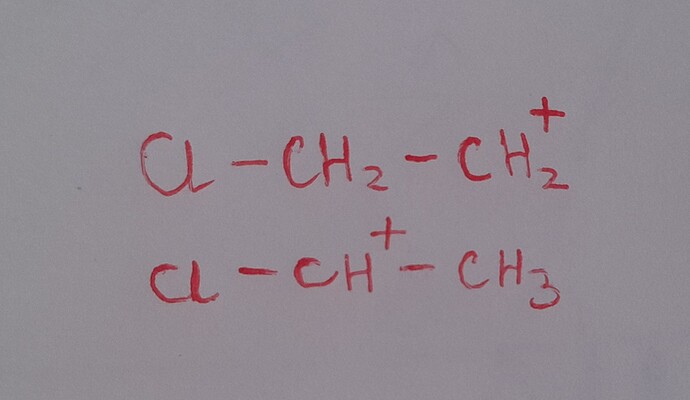 Cl – CH₂ – CH₂⁺
Cl – CH⁺ – CH₃